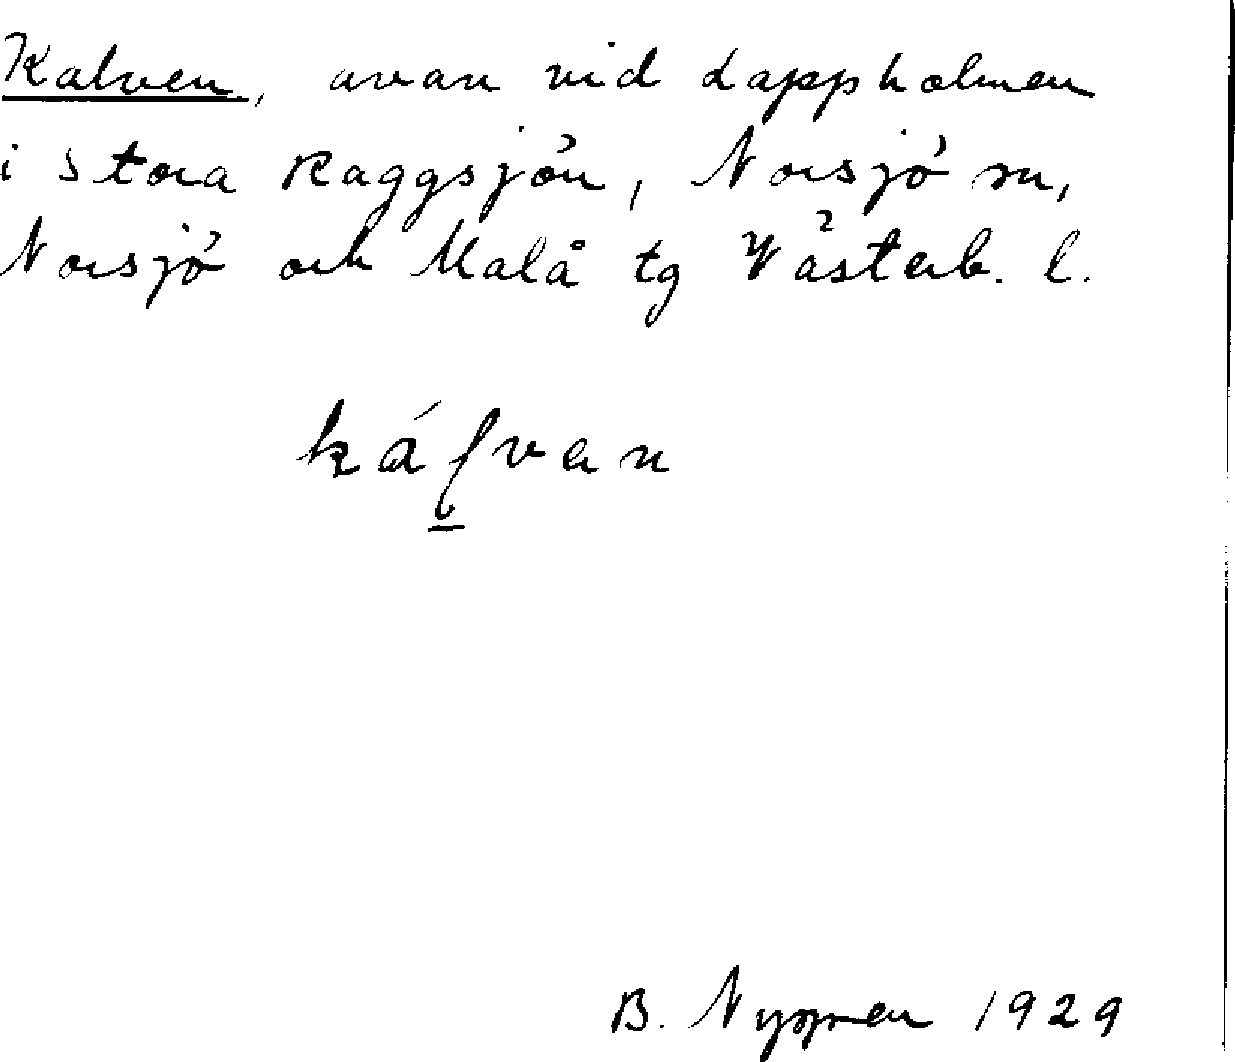 Kalven, avan vid Lappholmen
i Stora Raggsjön, Norsjö sn,
Norsjö och Malå tg Västerb. l.
kálvan
B. Nygren 1929